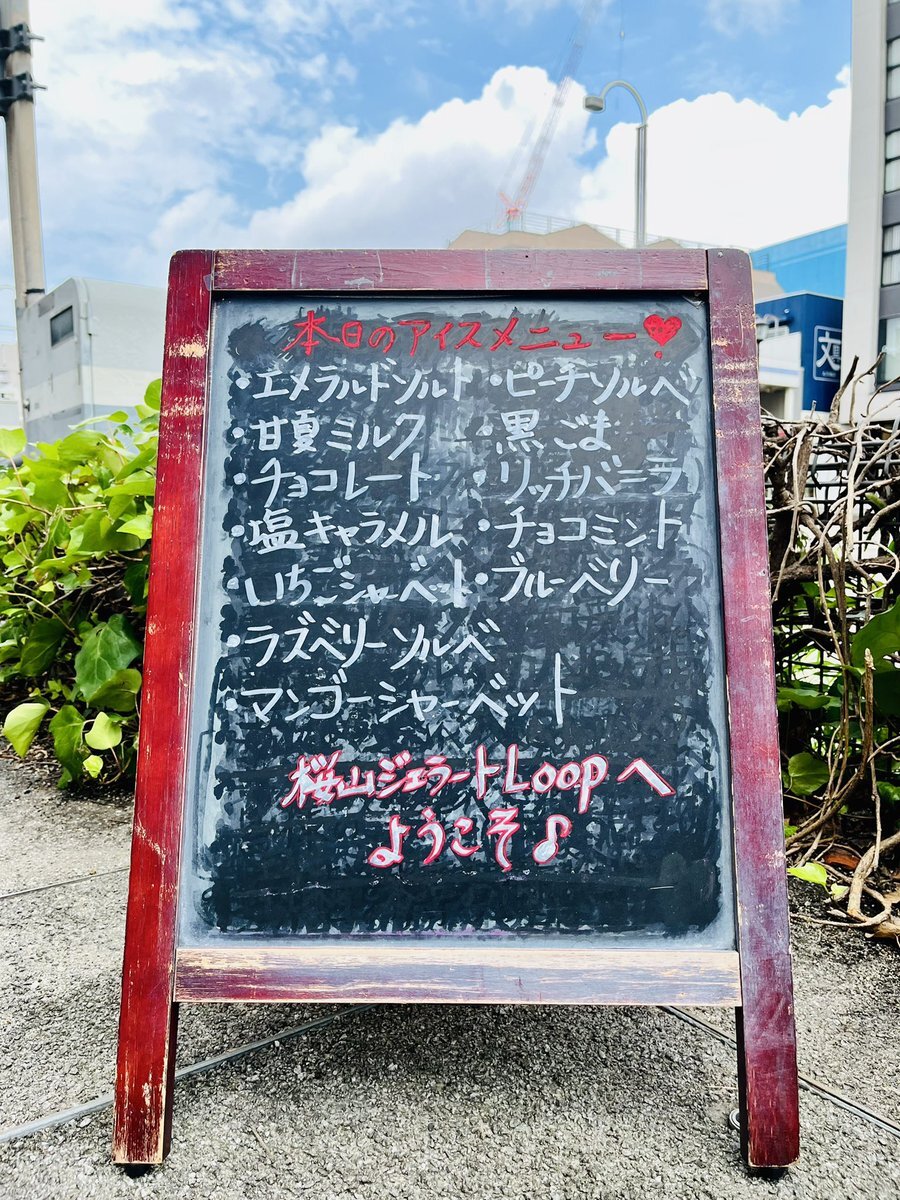 本日のアイスメニュー♥
・エメラルドソルト ・ピーチソルベ
・甘夏ミルク ・黒ごま
・チョコレート ・リッチバニラ
・塩キャラメル ・チョコミント
・いちごシャーベット ・ブルーベリー
・ラズベリーソルベ
・マンゴーシャーベット
桜山ジェラートLoopへ
ようこそ♪